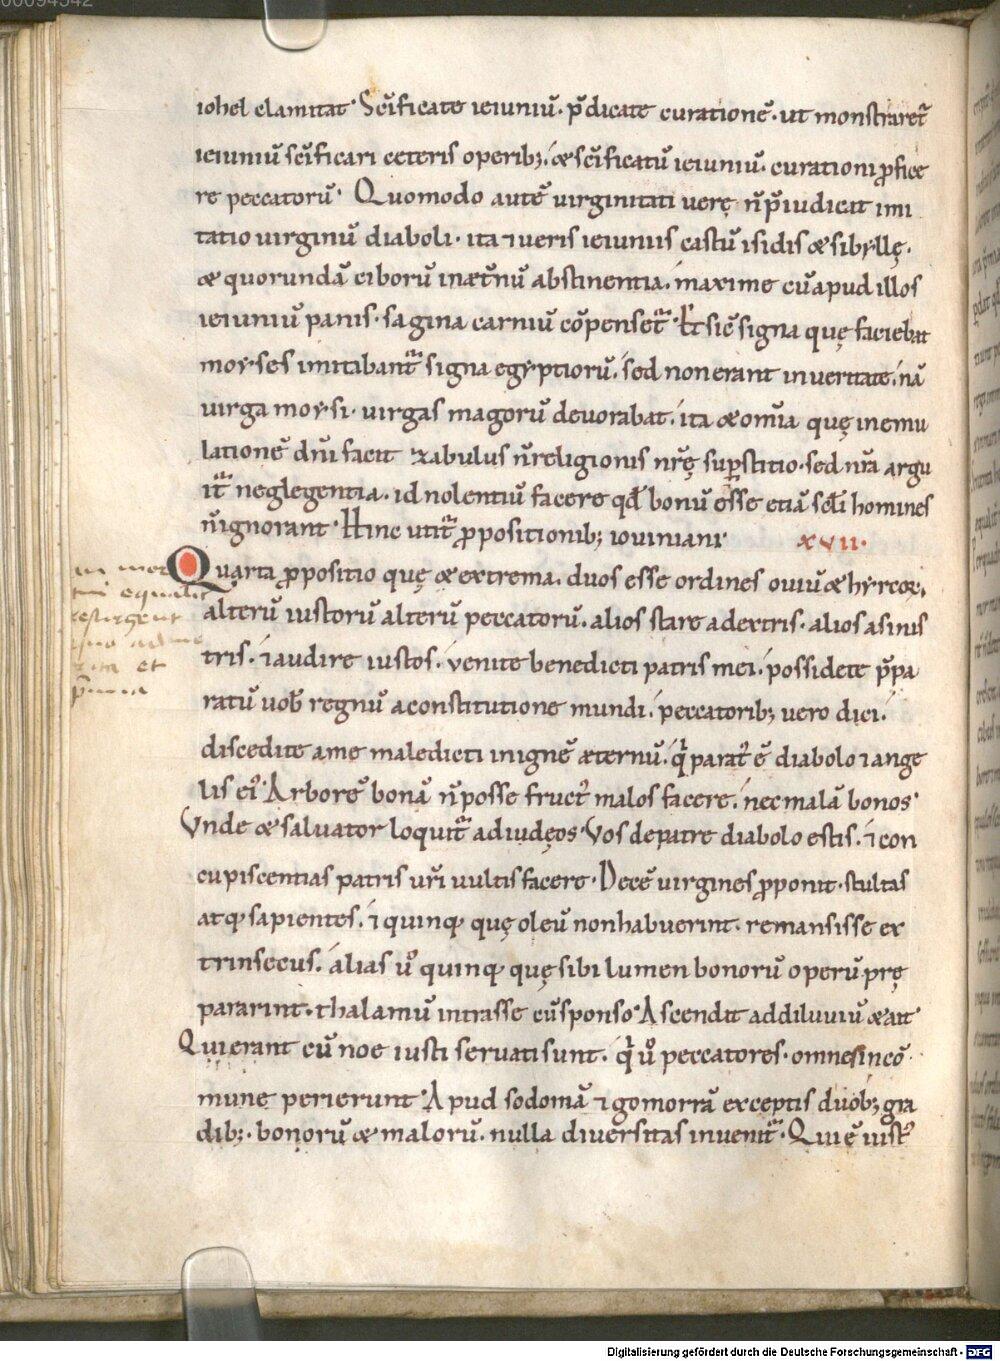 00094542
iohel clamitat· Sc̄ificate ieiuniū. p̄dicate curationē. ut monstraret᷑
ieiuniū sc̄ificari ceteris operib;. & sc̄ificatū ieiuniū. curationi ꝓfice
re peccatorū· Quomodo autē uirginitati uerę n̄ p̄iudicat imi
tatio uirginū diaboli· ita ⁊ ueris ieiuniis castū isidis & sibyllę.
& quorundā ciborū inæt̄nū abstinentia. maxime cū apud illos
ieiuniū panis· sagina carniū cōpenset᷑· Et sic̄ signa quę faciebat
moyses imitabant᷑ signa egyptiorū. sed non erant in ueritate. nā
uirga moysi· uirgas magorū deuorabat. ita & om̄ia quę in emu
lationē dn̄i facit zabulus n̄ religionis nr̄ę sup̱stitio· sed nr̄a argu
it᷑ neglegentia. id nolentiū facere qd̄ bonū esse etiā scl̄i homines
n̄ ignorant· Hinc utit᷑ ꝓpositionib; iouiniani· xvii·
Quarta ꝓpositio quę & extrema. duos esse ordines ouiū & hyrcoꝝ,
alterū iustorū alterū peccatorū. alios stare a dextris· alios a sinis
tris. ⁊ audire iustos. uenite benedicti patris mei. possidete p̄pa
ratū uob̄ regnū a constitutione mundi. peccatorib; uero dici.
discedite a me maledicti in ignē æternū. q̄ parat᷒ ē diabolo ⁊ ange
lis ei᷒· Arborē bonā n̄ posse fruct᷒ malos facere. nec malā bonos·
Vnde & saluator loquit᷑ ad iudęos· Vos de patre diabolo estis. ⁊ con
cupiscentias patris ur̄i uultis facere· Decē uirgines ꝓponit· stultas
atq; sapientes. ⁊ quinq; quę oleū non habuerint. remansisse ex
trinsecus. alias u͛o quinq; quę sibi lumen bonorū operū prę
pararint. thalamū intrasse cū sponso· Ascendit ad diluuiū & ait
Qui erant cū noe iusti seruati sunt. q̄ u͛o peccatores· omnes in cō
mune perierunt· Apud sodomā ⁊ gomorrā exceptis duob; gra
dib;· bonorū & malorū. nulla diuersitas inuenit᷑· Qui ē iust᷒
equalit
resurgent
et
Digitalisierung gefördert durch die Deutsche Forschungsgemeinschaft - DFG